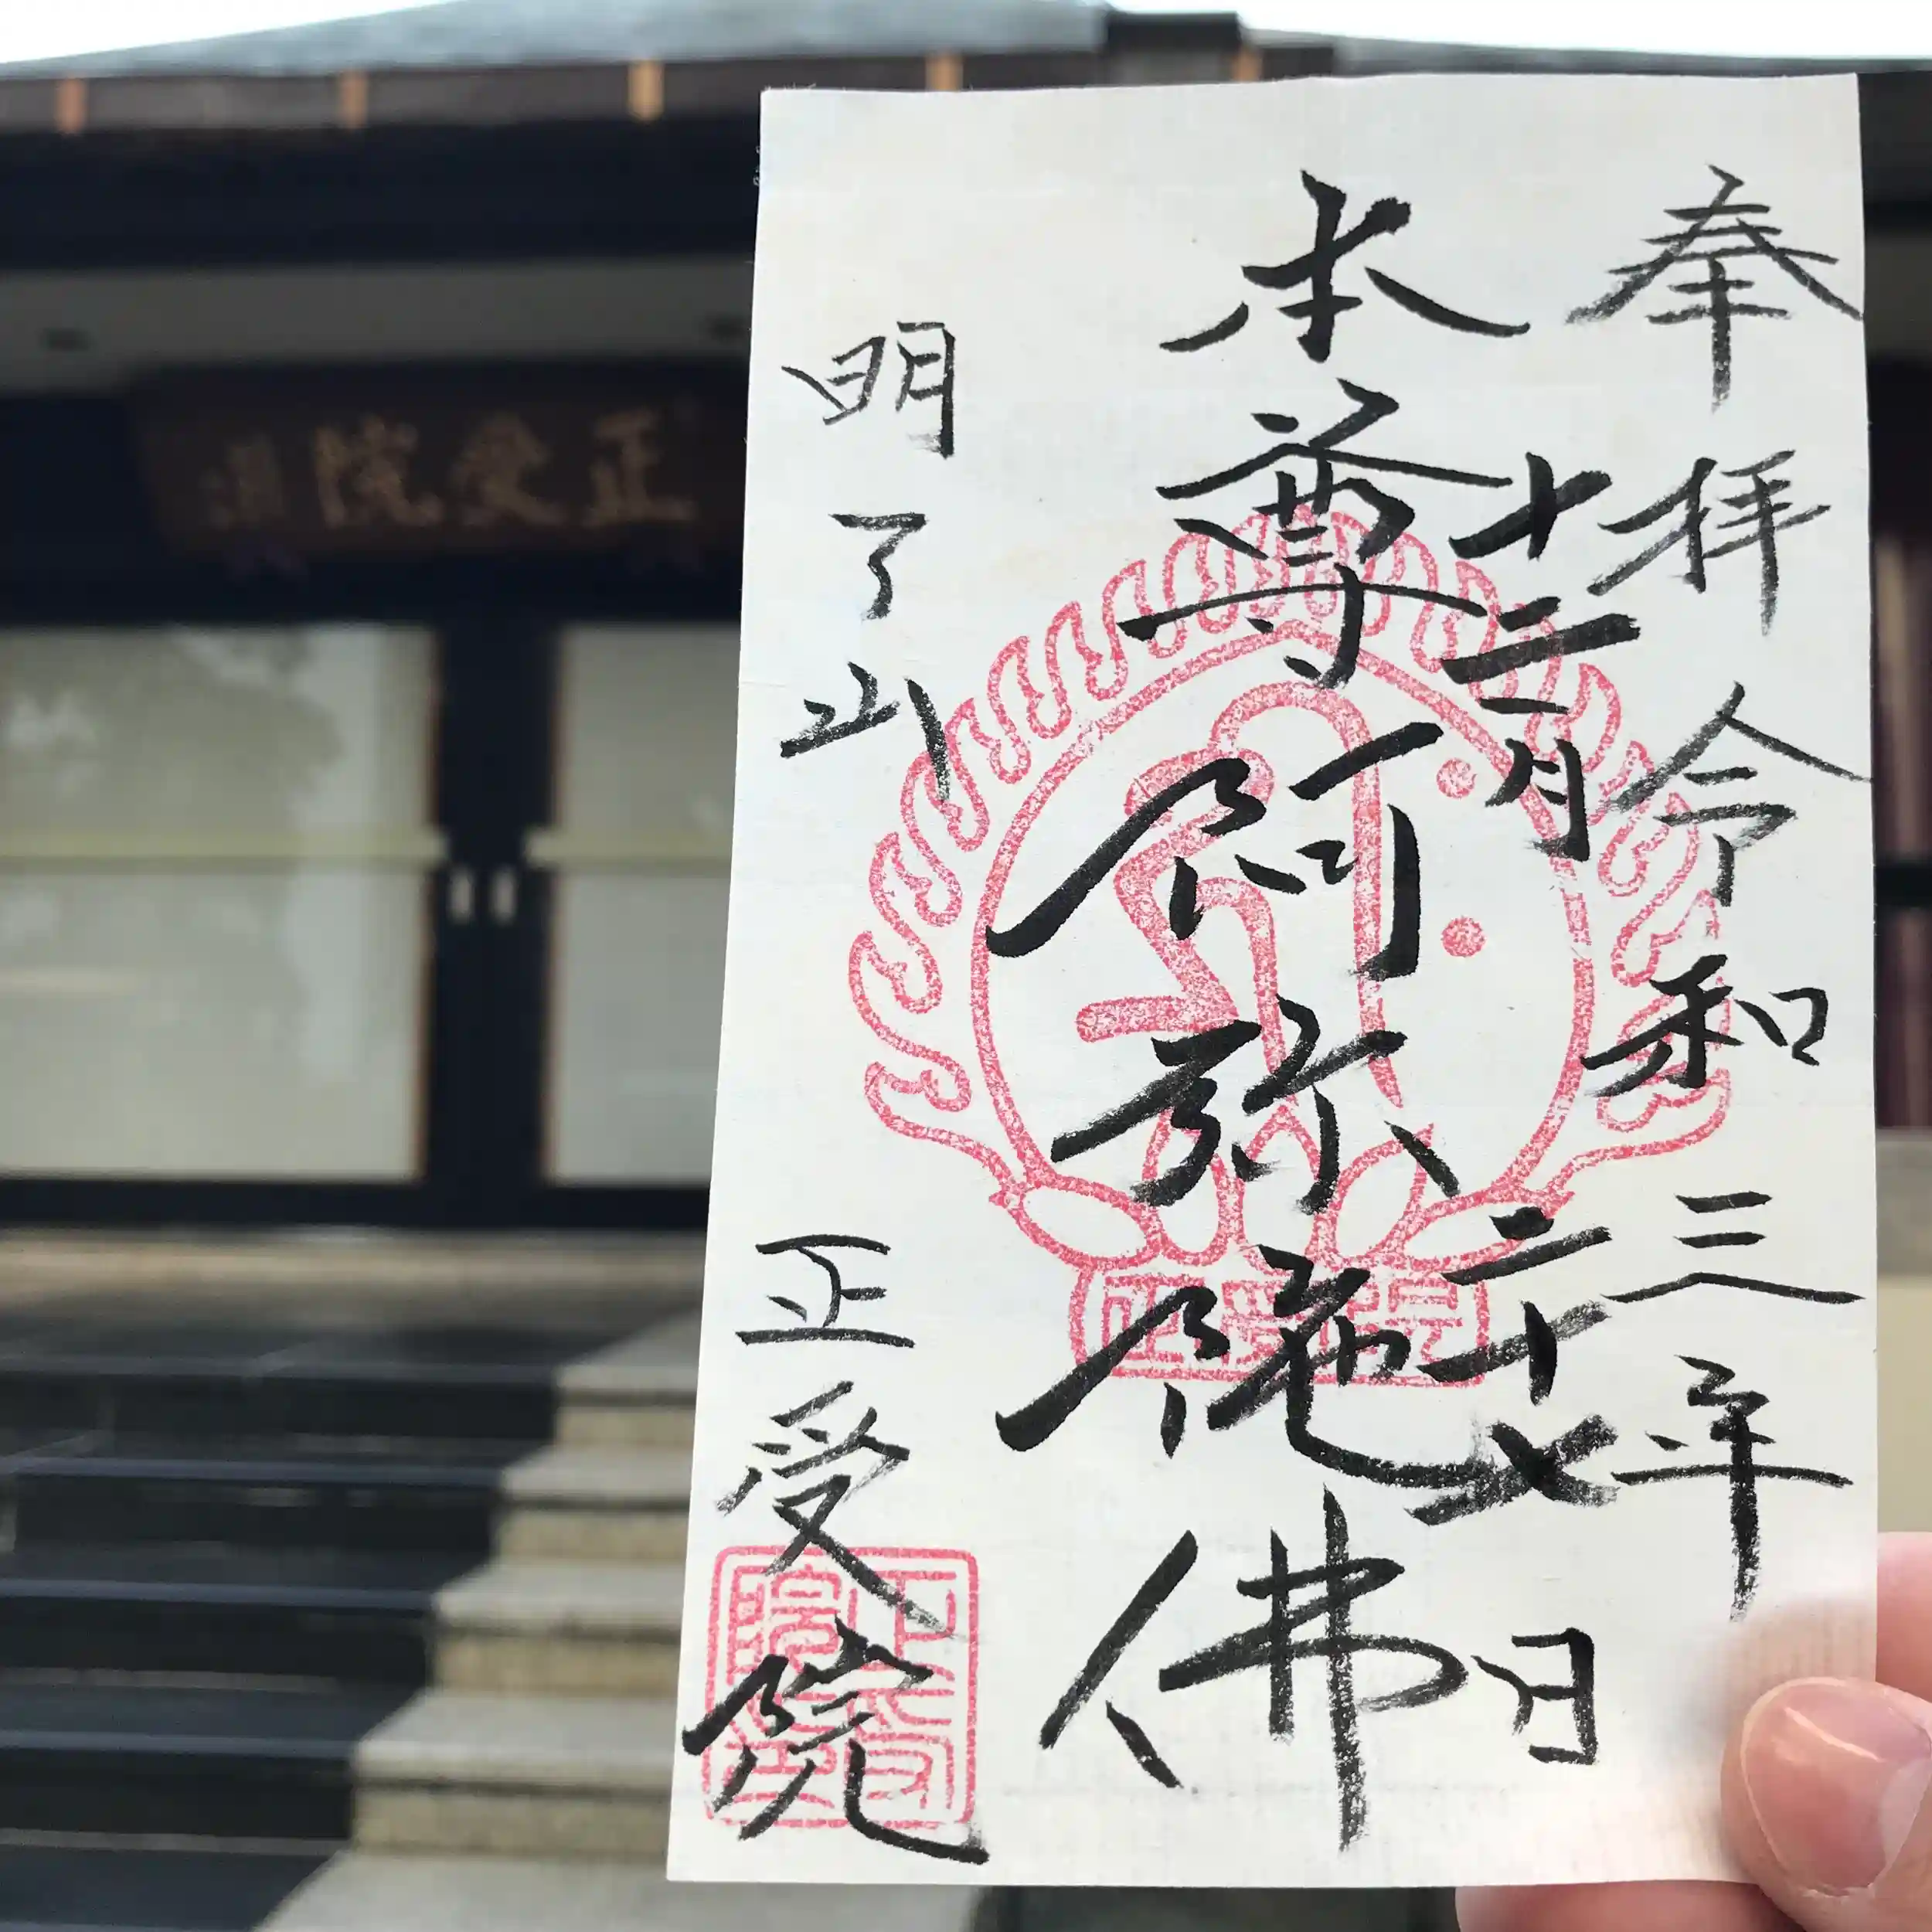 奉拝 令和三年
十二月二十七日
本尊阿弥陀佛
明了山 正受院
正受院